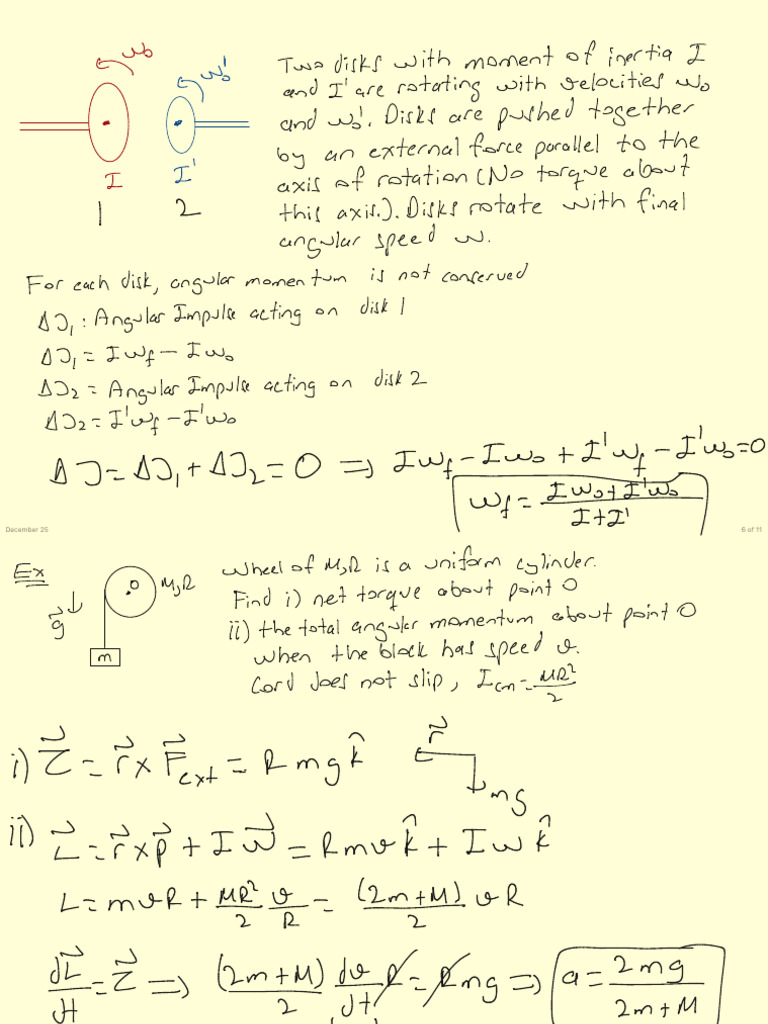 ω₀
ω₀'
I
I'
1
2
Two disks with moment of inertia I
and I' are rotating with velocities ω₀
and ω₀'. Disks are pushed together
by an external force parallel to the
axis of rotation (No torque about
this axis.). Disks rotate with final
angular speed ω.
For each disk, angular momentum is not conserved
ΔJ₁ : Angular Impulse acting on disk 1
ΔJ₁ = Iω_f - Iω₀
ΔJ₂ = Angular Impulse acting on disk 2
ΔJ₂ = I'ω_f - I'ω₀
ΔJ = ΔJ₁ + ΔJ₂ = 0 => Iω_f - Iω₀ + I'ω_f - I'ω₀ = 0
ω_f = (Iω₀ + I'ω₀)/(I + I')
December 25
6 of 11
Ex
O
M,R
g⃗
m
Wheel of M,R is a uniform cylinder.
Find i) net torque about point O
ii) the total angular momentum about point O
when the block has speed v.
Cord does not slip, I_cm = MR²/2
i) τ⃗ = r⃗ × F⃗_ext = R m g k̂
r⃗
mg
ii) L⃗ = r⃗ × p⃗ + I ω⃗ = R m v k̂ + I ω k̂
L = mvR + MR²/2 v/R = (2m+M)/2 vR
dL⃗/dt = τ⃗ => (2m+M)/2 dv/dt R = R mg => a = 2mg/(2m+M)